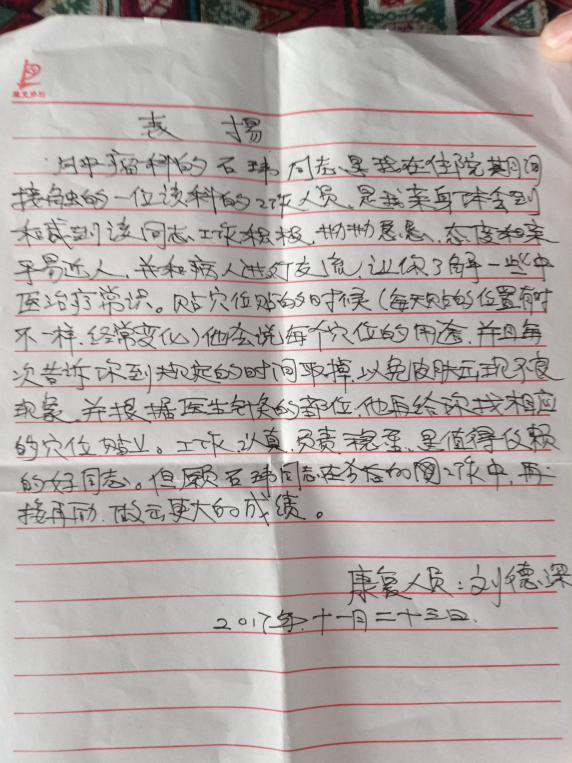 表 扬
中 科的石玮同志是我在住院期间
接触的一位该科的工作人员,是我亲身体会到
和感到该同志工作积极,勤勤恳恳,态度和柔
平易近人,并和病人进行交流,让你了解一些中
医治疗常识。贴穴位贴的时候(每天贴的位置有时
不一样,经常变化)他会说每个穴位的用途,并且每
次告诉你到规定的时间取掉,以免皮肤出现不良
现象,并根据医生 的部位,他再给你找相应
的穴位贴上。工作认真、负责、 ,是值得信赖
的好同志。但愿石玮同志在今后的 工作中,再
接再励,做出更大的成绩。
康复人员:刘德深
2017年十一月二十三日